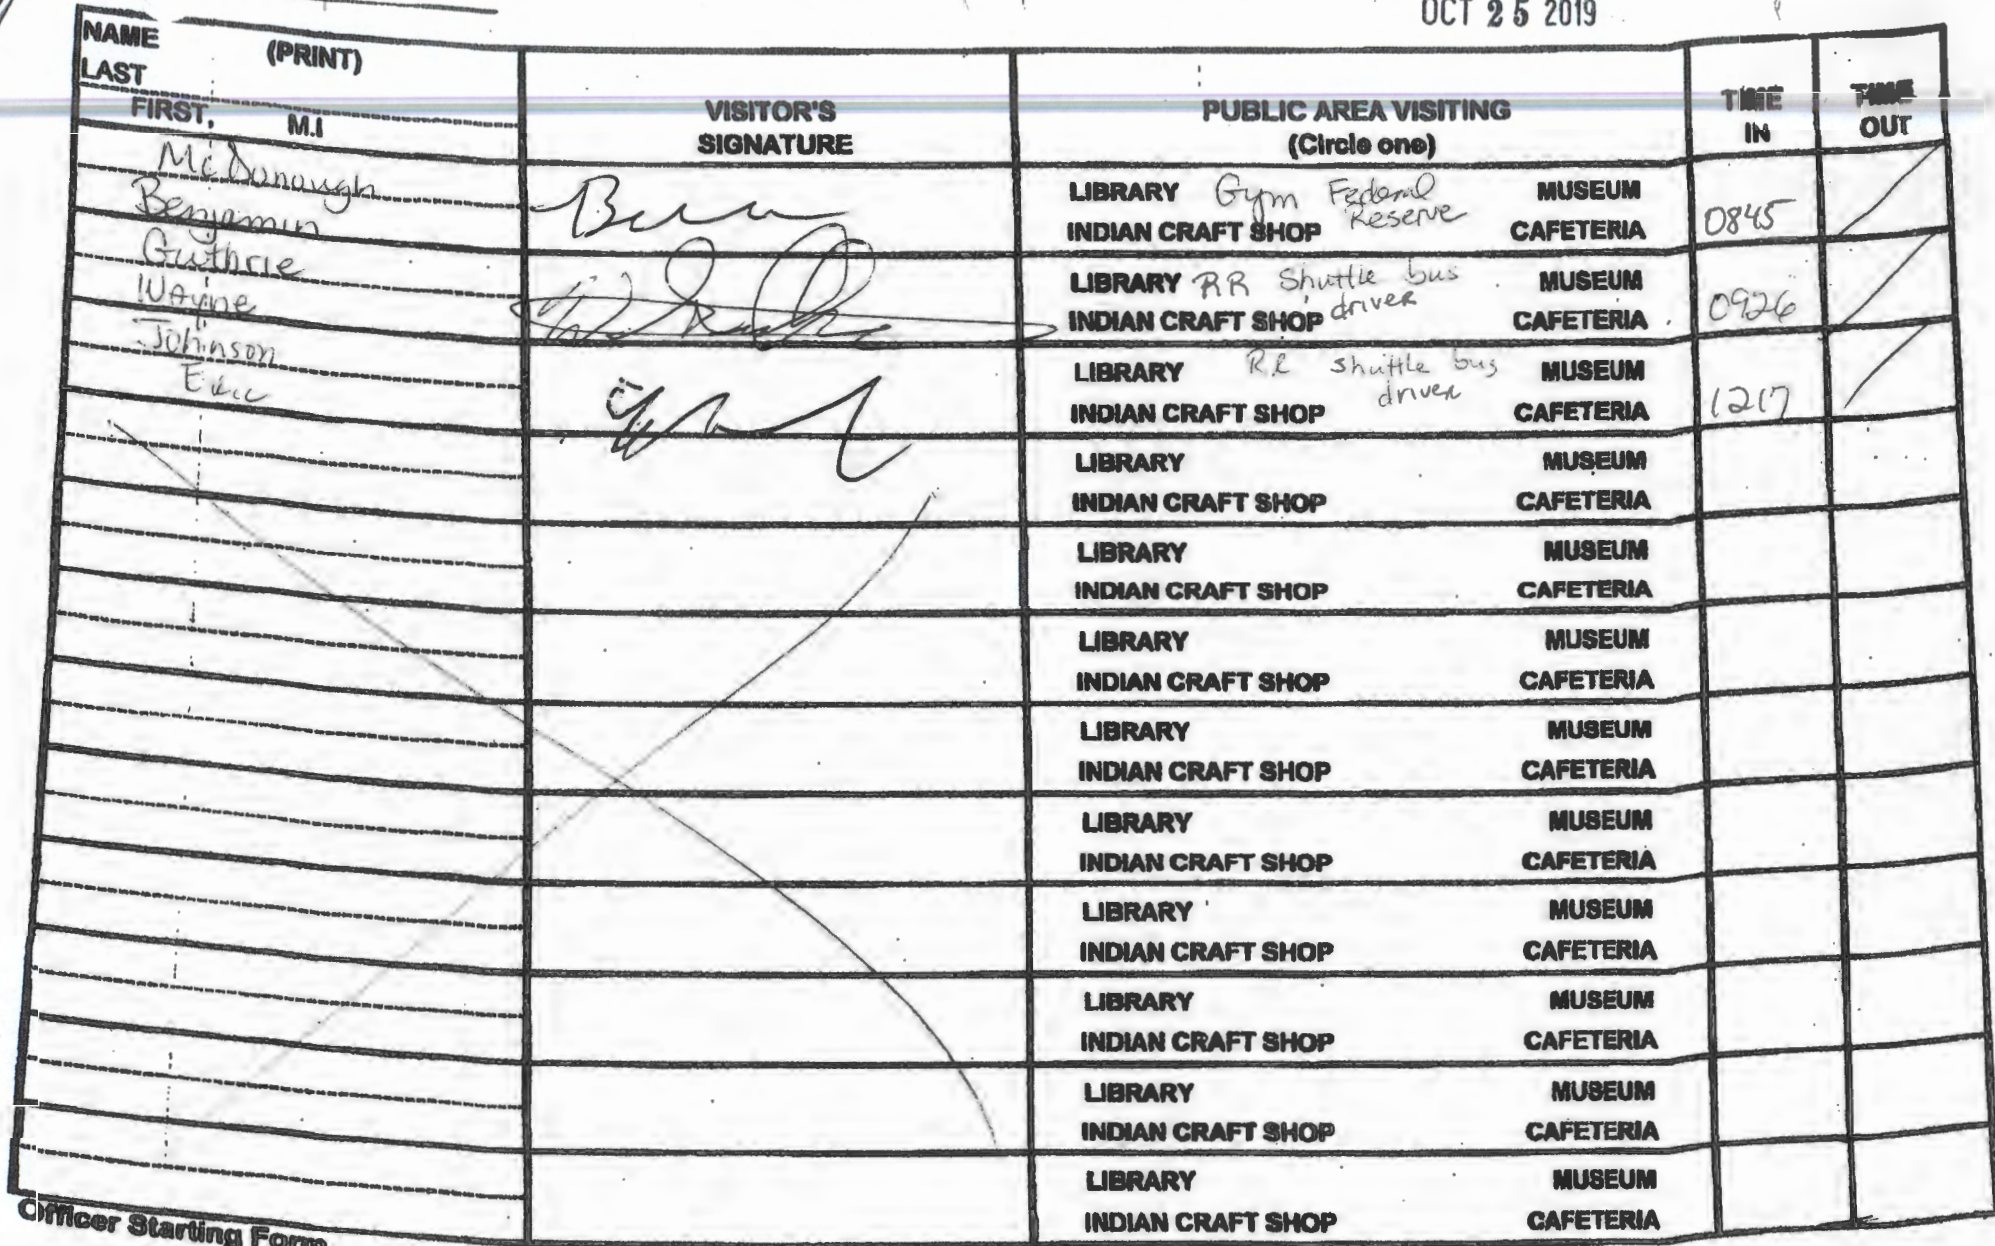 OCT 25 2019
NAME (PRINT)
LAST
FIRST, M.I
VISITOR'S
SIGNATURE
PUBLIC AREA VISITING
(Circle one)
TIME
IN
TIME
OUT
McDonough
Benjamin
LIBRARY Gym Federal Reserve MUSEUM
INDIAN CRAFT SHOP CAFETERIA
0845
Guthrie
Wayne
LIBRARY RR Shuttle bus driver MUSEUM
INDIAN CRAFT SHOP CAFETERIA
0926
Johnson
Eric
LIBRARY R.R shuttle bus driver MUSEUM
INDIAN CRAFT SHOP CAFETERIA
1217
LIBRARY MUSEUM
INDIAN CRAFT SHOP CAFETERIA
LIBRARY MUSEUM
INDIAN CRAFT SHOP CAFETERIA
LIBRARY MUSEUM
INDIAN CRAFT SHOP CAFETERIA
LIBRARY MUSEUM
INDIAN CRAFT SHOP CAFETERIA
LIBRARY MUSEUM
INDIAN CRAFT SHOP CAFETERIA
LIBRARY MUSEUM
INDIAN CRAFT SHOP CAFETERIA
LIBRARY MUSEUM
INDIAN CRAFT SHOP CAFETERIA
LIBRARY MUSEUM
INDIAN CRAFT SHOP CAFETERIA
LIBRARY MUSEUM
INDIAN CRAFT SHOP CAFETERIA
Officer Starting Form